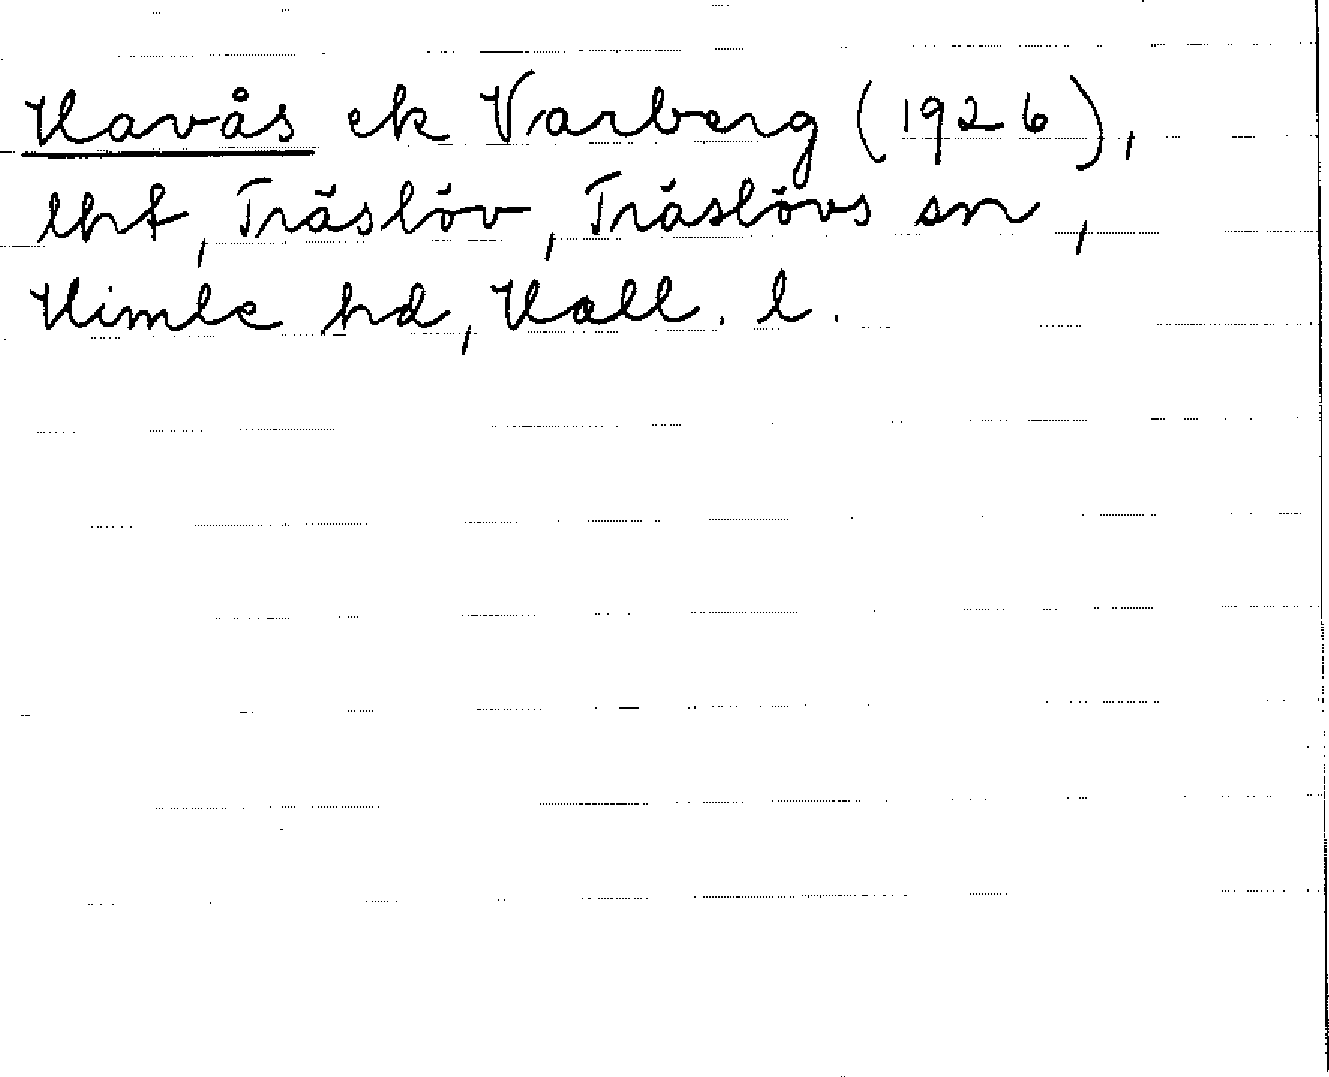 Havås ek Varberg (1926),
lht, Träslöv, Träslövs sn,
Himle hd, Hall. l.